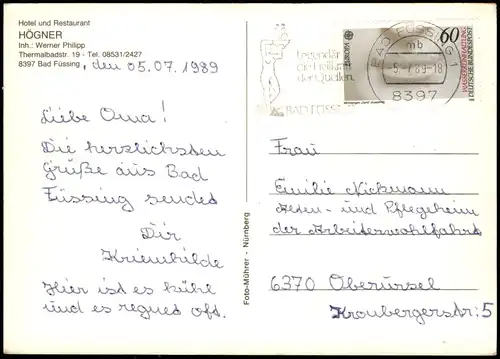 Hotel und Restaurant
HÖGNER
Inh.: Werner Philipp
Thermalbadstr. 19 - Tel. 08531/2427
8397 Bad Füssing
, den 05.07.1989
Liebe Oma!
Die herzlichsten
Grüße aus Bad
Füssing sendet
Dir
Kriemhilde
Hier ist es kühl
und es regnet oft.
Foto-Mührer - Nürnberg
Legendär
die Heilkraft
der Quellen.
BAD FÜSSING
EUROPA
60
WASSERREINHALTUNG
DEUTSCHE BUNDESPOST
BAD FÜSSING 1
mb
-5.-7.89-18
8397
Frau
Emilie Nickmann
Alten- und Pflegeheim
der Arbeiterwohlfahrt
6370 Oberursel
Kronbergerstr. 5